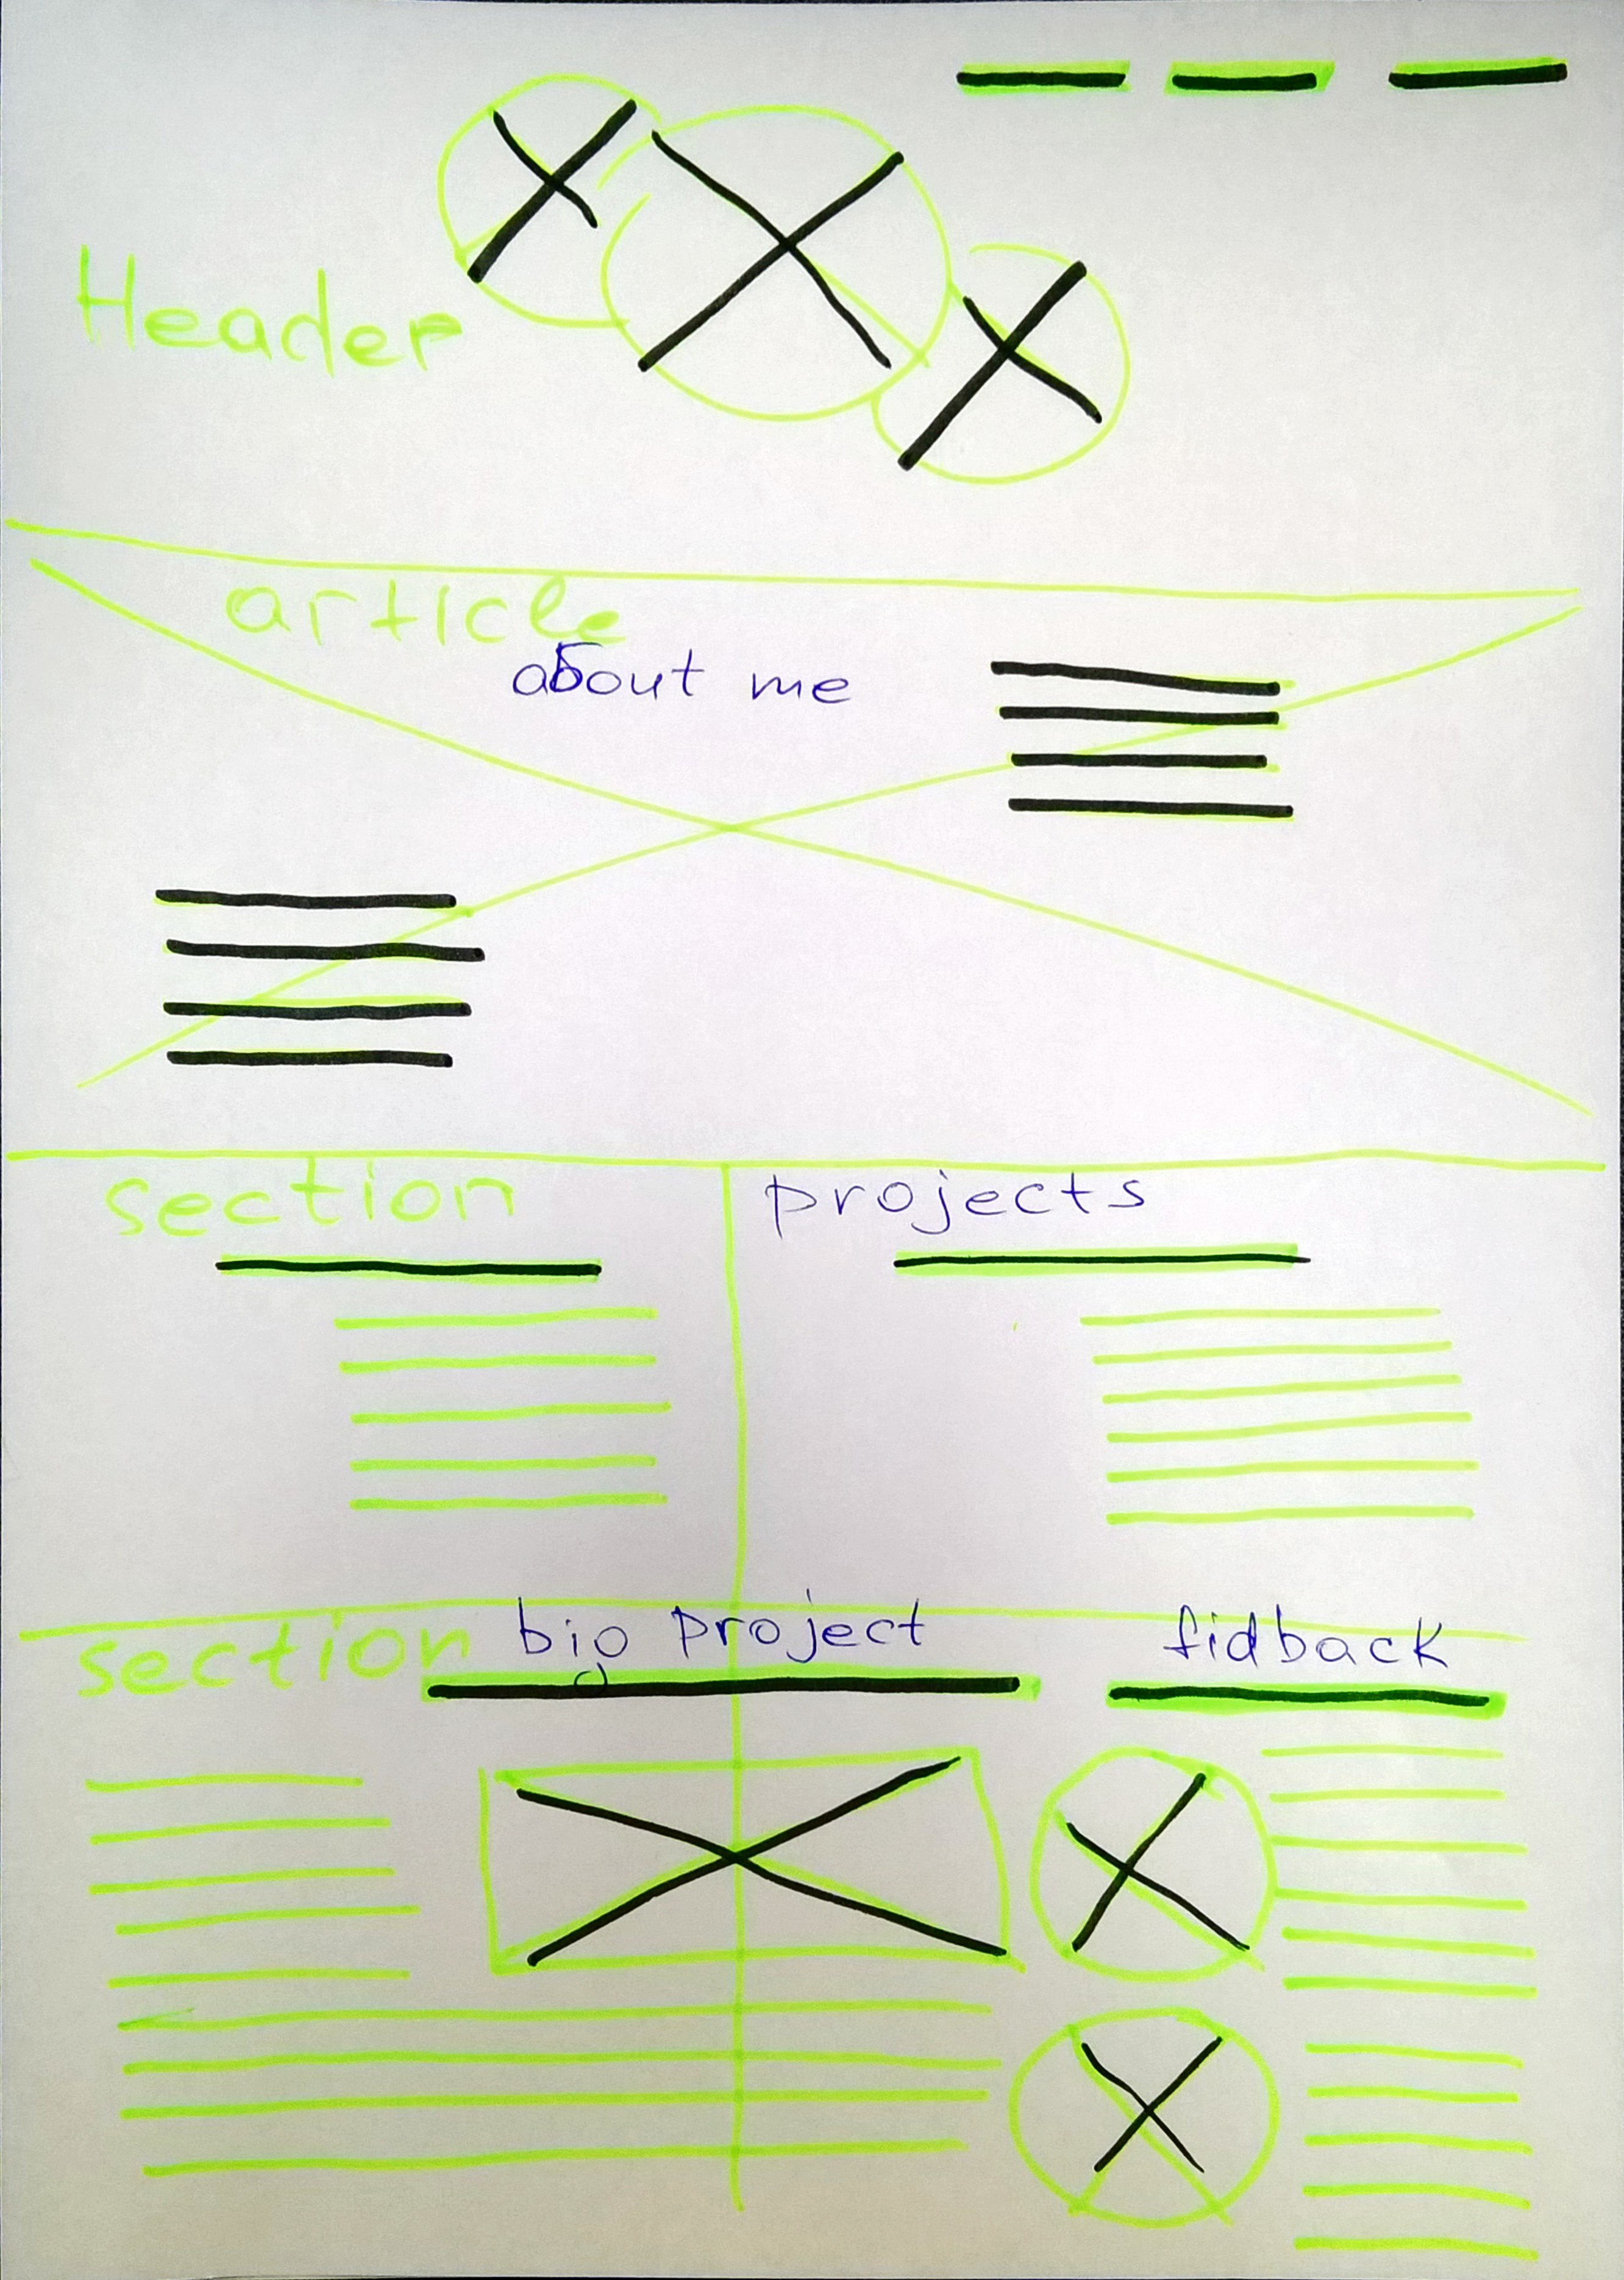 Header
article
about me
section
projects
section
big project
fidback